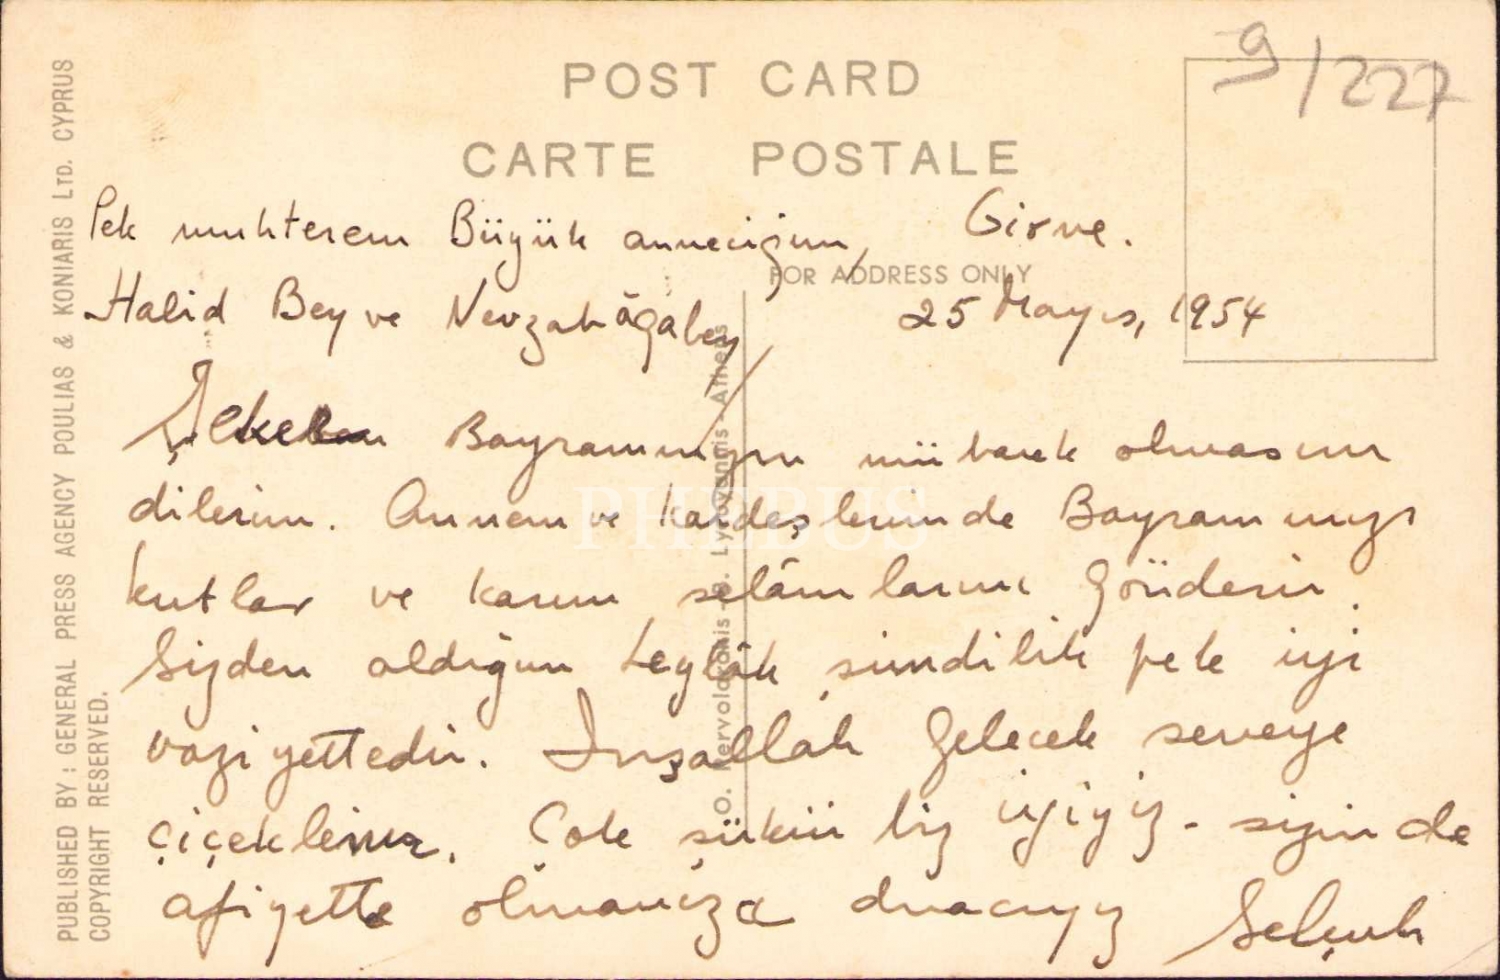 9/227
POST CARD
CARTE POSTALE
Pek muhterem Büyük anneciğim, Girne.
FOR ADDRESS ONLY
Halid Bey ve Nevzat âgabey 25 Mayıs, 1954
Şeker Bayramınızın mübarek olmasını
dilerim. Annem ve kardeşlerimde Bayramınızı
kutlar ve karım selâmlarını gönderir.
Sizden aldığım Leylâk şimdilik pek iyi
vaziyettedir. İnşallah gelecek seneye
çiçeklenir. Çok şükür biz iyiyiz. sizinde
afiyette olmanıza duacıyız Selçuk
PUBLISHED BY: GENERAL PRESS AGENCY POULIAS & KONIARIS LTD. CYPRUS
COPYRIGHT RESERVED.
PHEBUS